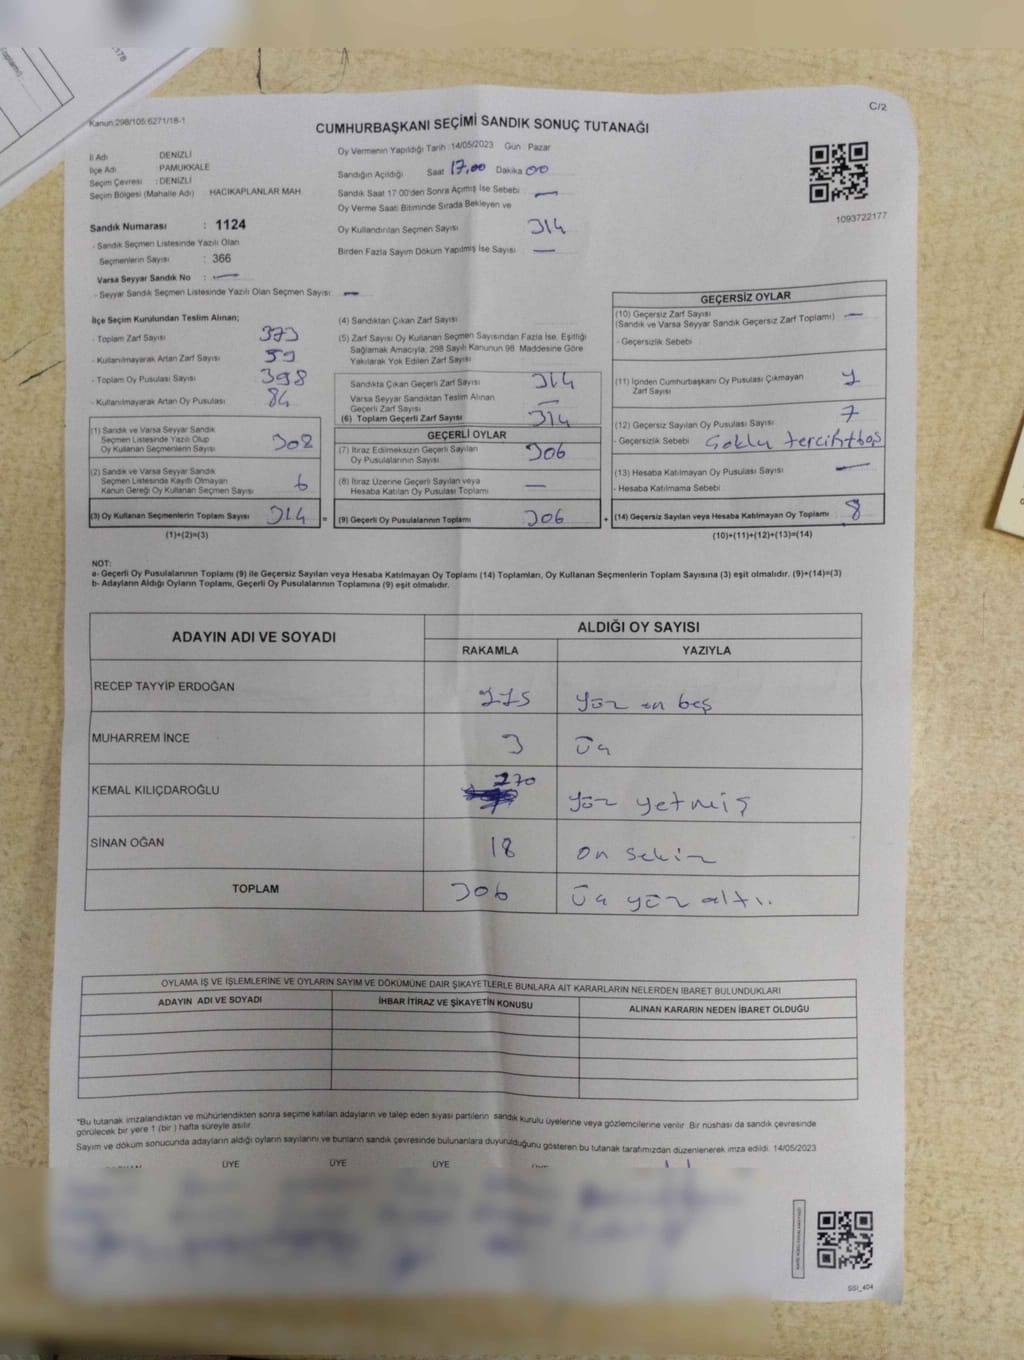 C/2
Kanun:298/105;6271/18-1
CUMHURBAŞKANI SEÇİMİ SANDIK SONUÇ TUTANAĞI
İl Adı DENİZLİ
İlçe Adı PAMUKKALE
Seçim Çevresi : DENİZLİ
Seçim Bölgesi (Mahalle Adı) HACIKAPLANLAR MAH.
Sandık Numarası : 1124
- Sandık Seçmen Listesinde Yazılı Olan
Seçmenlerin Sayısı : 366
Varsa Seyyar Sandık No : —
- Seyyar Sandık Seçmen Listesinde Yazılı Olan Seçmen Sayısı: —
Oy Vermenin Yapıldığı Tarih :14/05/2023 Gün : Pazar
Sandığın Açıldığı Saat 17.00 Dakika 00
Sandık Saat 17:00'den Sonra Açılmış İse Sebebi —
Oy Verme Saati Bitiminde Sırada Bekleyen ve
Oy Kullandırılan Seçmen Sayısı 314
Birden Fazla Sayım Döküm Yapılmış İse Sayısı —
1093722177
İlçe Seçim Kurulundan Teslim Alınan;
- Toplam Zarf Sayısı 373
- Kullanılmayarak Artan Zarf Sayısı 59
- Toplam Oy Pusulası Sayısı 398
- Kullanılmayarak Artan Oy Pusulası 84
(1) Sandık ve Varsa Seyyar Sandık
Seçmen Listesinde Yazılı Olup
Oy Kullanan Seçmenlerin Sayısı 308
(2) Sandık ve Varsa Seyyar Sandık
Seçmen Listesinde Kayıtlı Olmayan
Kanun Gereği Oy Kullanan Seçmen Sayısı 6
(3) Oy Kullanan Seçmenlerin Toplam Sayısı 314 =
(1)+(2)=(3)
(4) Sandıktan Çıkan Zarf Sayısı
(5) Zarf Sayısı Oy Kullanan Seçmen Sayısından Fazla İse, Eşitliği
Sağlamak Amacıyla, 298 Sayılı Kanunun 98. Maddesine Göre
Yakılarak Yok Edilen Zarf Sayısı
Sandıkta Çıkan Geçerli Zarf Sayısı 314
Varsa Seyyar Sandıktan Teslim Alınan
Geçerli Zarf Sayısı —
(6) Toplam Geçerli Zarf Sayısı 314
GEÇERLİ OYLAR
(7) İtiraz Edilmeksizin Geçerli Sayılan
Oy Pusulalarının Sayısı 306
(8) İtiraz Üzerine Geçerli Sayılan veya
Hesaba Katılan Oy Pusulası Toplamı —
(9) Geçerli Oy Pusulalarının Toplamı 306 +
GEÇERSİZ OYLAR
(10) Geçersiz Zarf Sayısı
(Sandık ve Varsa Seyyar Sandık Geçersiz Zarf Toplamı) —
- Geçersizlik Sebebi
(11) İçinden Cumhurbaşkanı Oy Pusulası Çıkmayan
Zarf Sayısı 1
(12) Geçersiz Sayılan Oy Pusulası Sayısı 7
- Geçersizlik Sebebi Çoklu tercih+boş
(13) Hesaba Katılmayan Oy Pusulası Sayısı —
- Hesaba Katılmama Sebebi
(14) Geçersiz Sayılan veya Hesaba Katılmayan Oy Toplamı 8
(10)+(11)+(12)+(13)=(14)
NOT:
a- Geçerli Oy Pusulalarının Toplamı (9) ile Geçersiz Sayılan veya Hesaba Katılmayan Oy Toplamı (14) Toplamları, Oy Kullanan Seçmenlerin Toplam Sayısına (3) eşit olmalıdır. (9)+(14)=(3)
b- Adayların Aldığı Oyların Toplamı, Geçerli Oy Pusulalarının Toplamına (9) eşit olmalıdır.
ADAYIN ADI VE SOYADI ALDIĞI OY SAYISI
RAKAMLA YAZIYLA
RECEP TAYYİP ERDOĞAN 115 yüz on beş
MUHARREM İNCE 3 üç
KEMAL KILIÇDAROĞLU 170 yüz yetmiş
SİNAN OĞAN 18 on sekiz
TOPLAM 306 üç yüz altı
OYLAMA İŞ VE İŞLEMLERİNE VE OYLARIN SAYIM VE DÖKÜMÜNE DAİR ŞİKAYETLERLE BUNLARA AİT KARARLARIN NELERDEN İBARET BULUNDUKLARI
ADAYIN ADI VE SOYADI İHBAR İTİRAZ VE ŞİKAYETİN KONUSU ALINAN KARARIN NEDEN İBARET OLDUĞU
*Bu tutanak imzalandıktan ve mühürlendikten sonra seçime katılan adayların ve talep eden siyasi partilerin sandık kurulu üyelerine veya gözlemcilerine verilir. Bir nüshası da sandık çevresinde
görülecek bir yere 1 (bir ) hafta süreyle asılır.
Sayım ve döküm sonucunda adayların aldığı oyların sayılarını ve bunların sandık çevresinde bulunanlara duyurulduğunu gösteren bu tutanak tarafımızdan düzenlenerek imza edildi. 14/05/2023
ÜYE ÜYE ÜYE
SSI_404